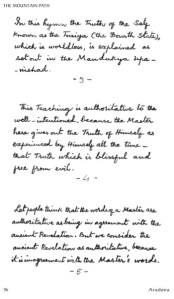 THE MOUNTAIN PATH
In this hymn the Truth of the Self
known as the Turiya (the Fourth State),
which is worldless, is explained as
set out in the Mandukya Upa-
-nishad.
- 3 -
This Teaching is authoritative to the
well-intentioned, because the Master
here gives out the Truth of Himself as
experienced by Himself all the time -
that Truth which is blissful and
free from evil.
- 4 -
Let people think that the words of a Master are
authoritative as being in agreement with the
ancient Revelation. But we consider the
ancient Revelation as authoritative, because
it is in agreement with the Master's words.
- 5 -
96
Aradana